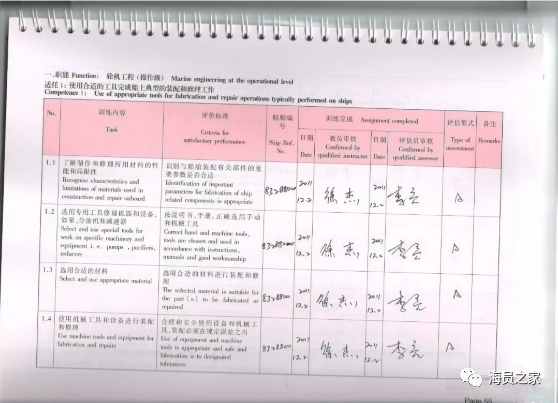 一.职能 Function: 轮机工程(操作级) Marine engineering at the operational level
适任 1: 使用合适的工具完成船上典型的装配和修理工作
Competence 1: Use of appropriate tools for fabrication and repair operations typically performed on ships
No.
训练内容
Task
评价标准
Criteria for
satisfactory performance
船舶编
号
Ship Ref.
No.
训练完成 Assignment completed
日期
Date
教员审核
Confirmed by
qualified instructor
日期
Date
评估员审核
Confirmed by
qualified assessor
评估形式
Type of
assessment
备注
Remarks
1.1
了解制作和修理所用材料的性
能和局限性
Recognise characteristics and
limitations of materials used in
construction and repair onboard
识别与船舶装配有关部件的重
要参数是否合适
Identification of important
parameters for fabrication of ship
related components is appropriate
2011
12.2
徐杰
2011
12.2
李亮
A
1.2
选用专用工具修理机器和设备,
如泵,分油机和减速器
Select and use special tools for
work on specific machinery and
equipment i. e. pumps , purifiers,
reducers
按说明书、手册,正确选用手动
和机械工具
Correct hand and machine tools,
tools are chosen and used in
accordance with instructions,
manuals and good workmanship
2011
12.2
徐杰
2011
12.2
李亮
A
1.3
选用合适的材料
Select and use appropriate material
选用合适的材料进行装配和修
理
The selected material is suitable for
the part (s) to be fabricated or
repaired
2011
12.2
徐杰
2011
12.2
李亮
A
1.4
使用机械工具和设备进行装配
和修理
Use machine tools and equipment for
fabrication and repairs
合理和安全使用设备和机械工
具,装配必须在规定误差之内
Use of equipment and machine
tools is appropriate and safe and
fabrication is to designated
tolerances
2011
12.2
徐杰
2011
12.2
李亮
A
海员之家
Page 55